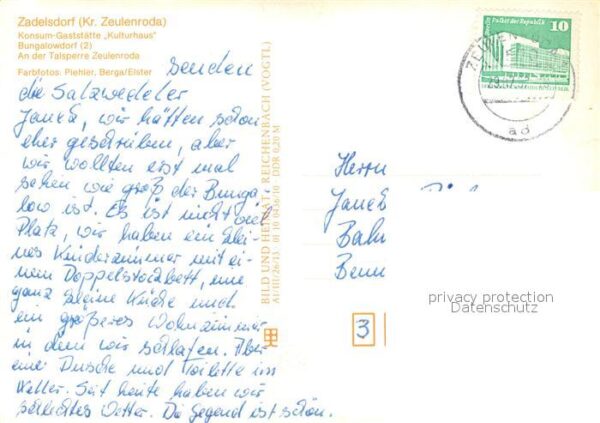 Zadelsdorf (Kr. Zeulenroda)
Konsum-Gaststätte „Kulturhaus"
Bungalowdorf (2)
An der Talsperre Zeulenroda
Farbfotos: Piehler, Berga/Elster
senden
die Salzwedeler
Janek, wir hätten schon
eher geschrieben, aber
wir wollten erst mal
sehen wie groß der Bunga-
low ist. Es ist nicht viel
Platz, wir haben ein klei-
nes Kinderzimmer mit ei-
nem Doppelstockbett, eine
ganz kleine Küche und
ein größeres Wohnzimmer
in dem wir schlafen. Aber
eine Dusche und Toilette im
Keller. Seit heute haben wir
schlechtes Wetter. Die Gegend ist schön.
BILD UND HEIMAT REICHENBACH (VOGTL)
A1 (III/26/13) 01 10 0436/10 DDR 0,20 M
Berlin Palast der Republik
10
ad
Herrn
Janek
Bahn
Benn
3
privacy protection
Datenschutz